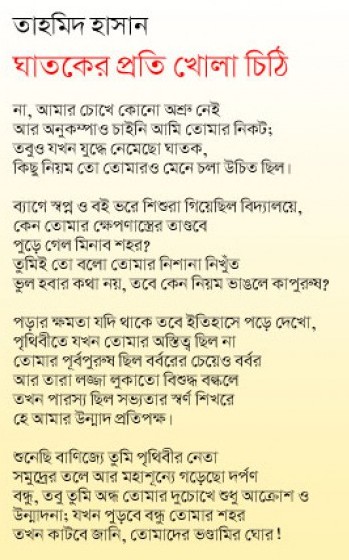 তাহমিদ হাসান
ঘাতকের প্রতি খোলা চিঠি
না, আমার চোখে কোনো অশ্রু নেই
আর অনুকম্পাও চাইনি আমি তোমার নিকট;
তবুও যখন যুদ্ধে নেমেছো ঘাতক,
কিছু নিয়ম তো তোমারও মেনে চলা উচিত ছিল।
ব্যাগে স্বপ্ন ও বই ভরে শিশুরা গিয়েছিল বিদ্যালয়ে,
কেন তোমার ক্ষেপণাস্ত্রের তাণ্ডবে
পুড়ে গেল মিনাব শহর?
তুমিই তো বলো তোমার নিশানা নিখুঁত
ভুল হবার কথা নয়, তবে কেন নিয়ম ভাঙলে কাপুরুষ?
পড়ার ক্ষমতা যদি থাকে তবে ইতিহাসে পড়ে দেখো,
পৃথিবীতে যখন তোমার অস্তিত্ব ছিল না
তোমার পূর্বপুরুষ ছিল বর্বরের চেয়েও বর্বর
আর তারা লজ্জা লুকাতো বিশুদ্ধ বল্কলে
তখন পারস্য ছিল সভ্যতার স্বর্ণ শিখরে
হে আমার উন্মাদ প্রতিপক্ষ।
শুনেছি বাণিজ্যে তুমি পৃথিবীর নেতা
সমুদ্রের তলে আর মহাশূন্যে গড়েছো দর্পণ
বন্ধু, তবু তুমি অন্ধ তোমার দুচোখে শুধু আক্রোশ ও
উন্মাদনা; যখন পুড়বে বন্ধু তোমার শহর
তখন কাটবে জানি, তোমাদের ভণ্ডামির ঘোর!